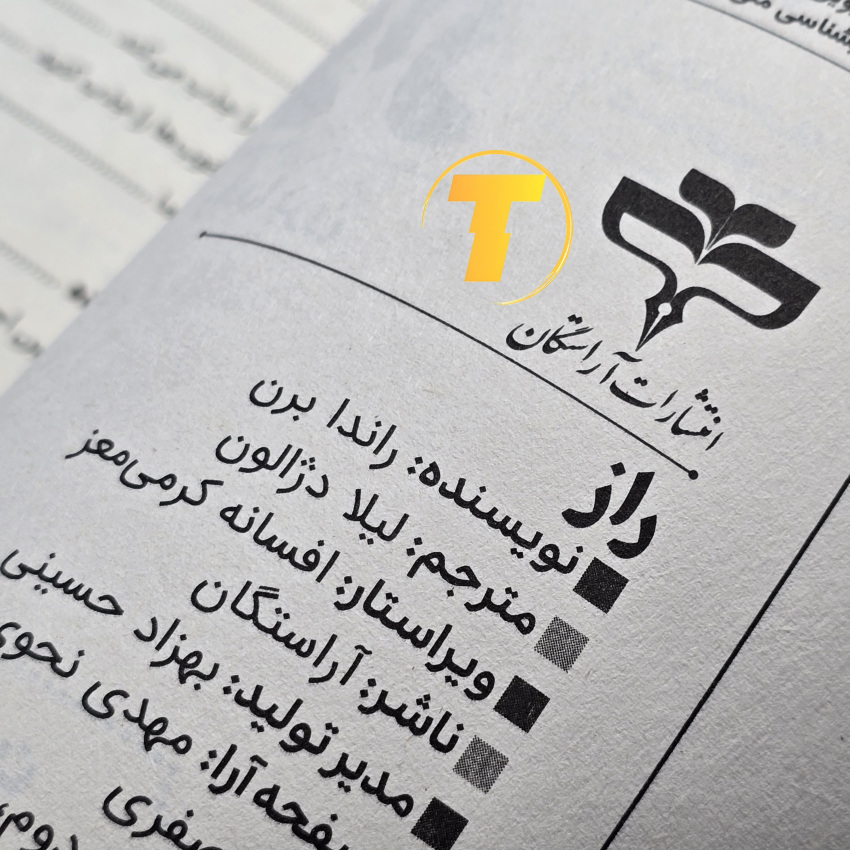 شناسی
T
انتشارات آراستگان
راز
نویسنده: راندا برن
مترجم: لیلا دژالون
ویراستار: افسانه کرمی‌معز
ناشر: آراستگان
مدیر تولید: بهزاد حسینی
صفحه‌آرا: مهدی نحوی
صفری
دوم،